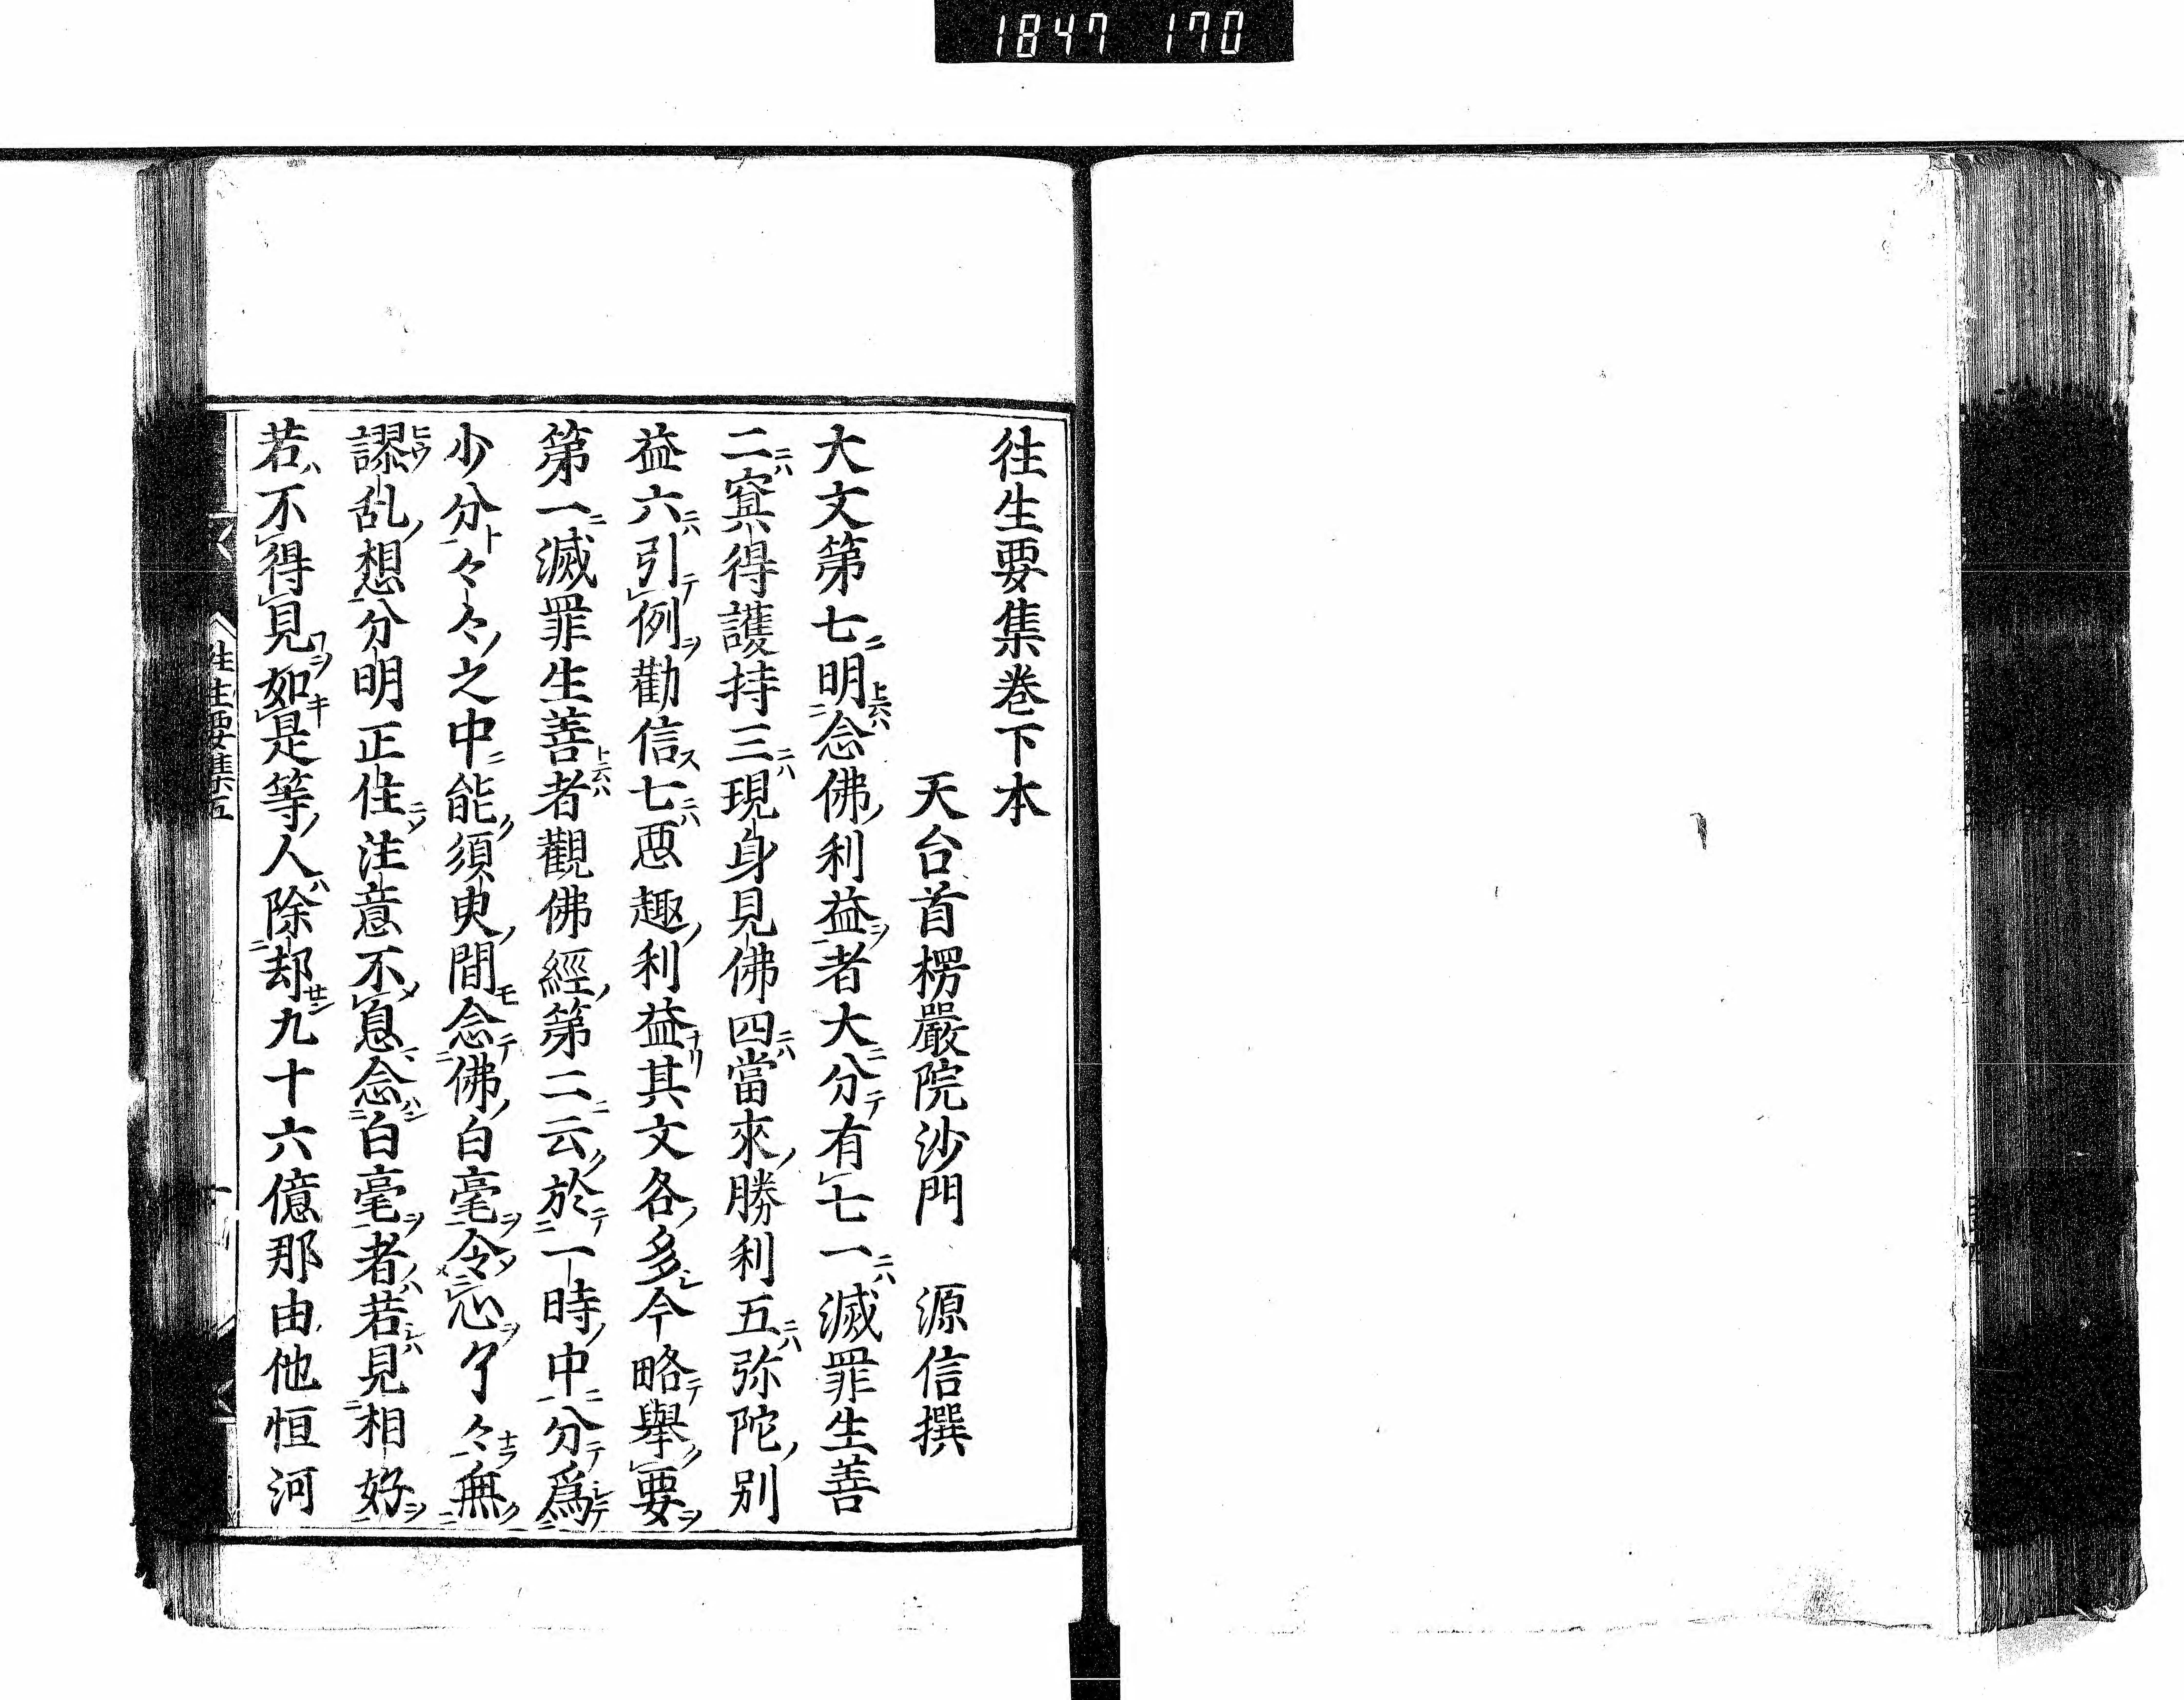 1847 170
往生要集巻下本
天台首楞嚴院沙門 源信撰
大文第七明念佛利益者大分有七一滅罪生善
二冥得護持三現身見佛四當來勝利五弥陀別
益六引例勸信七悪趣利益其文各多今略舉要
第一滅罪生善者觀佛經第二云於一時中分爲
少分々々之中能須臾間念佛白毫令心了々無
謬乱想分明正住注意不息念白毫者若見相好
若不得見如是等人除却九十六億那由他恒河
往生要集五